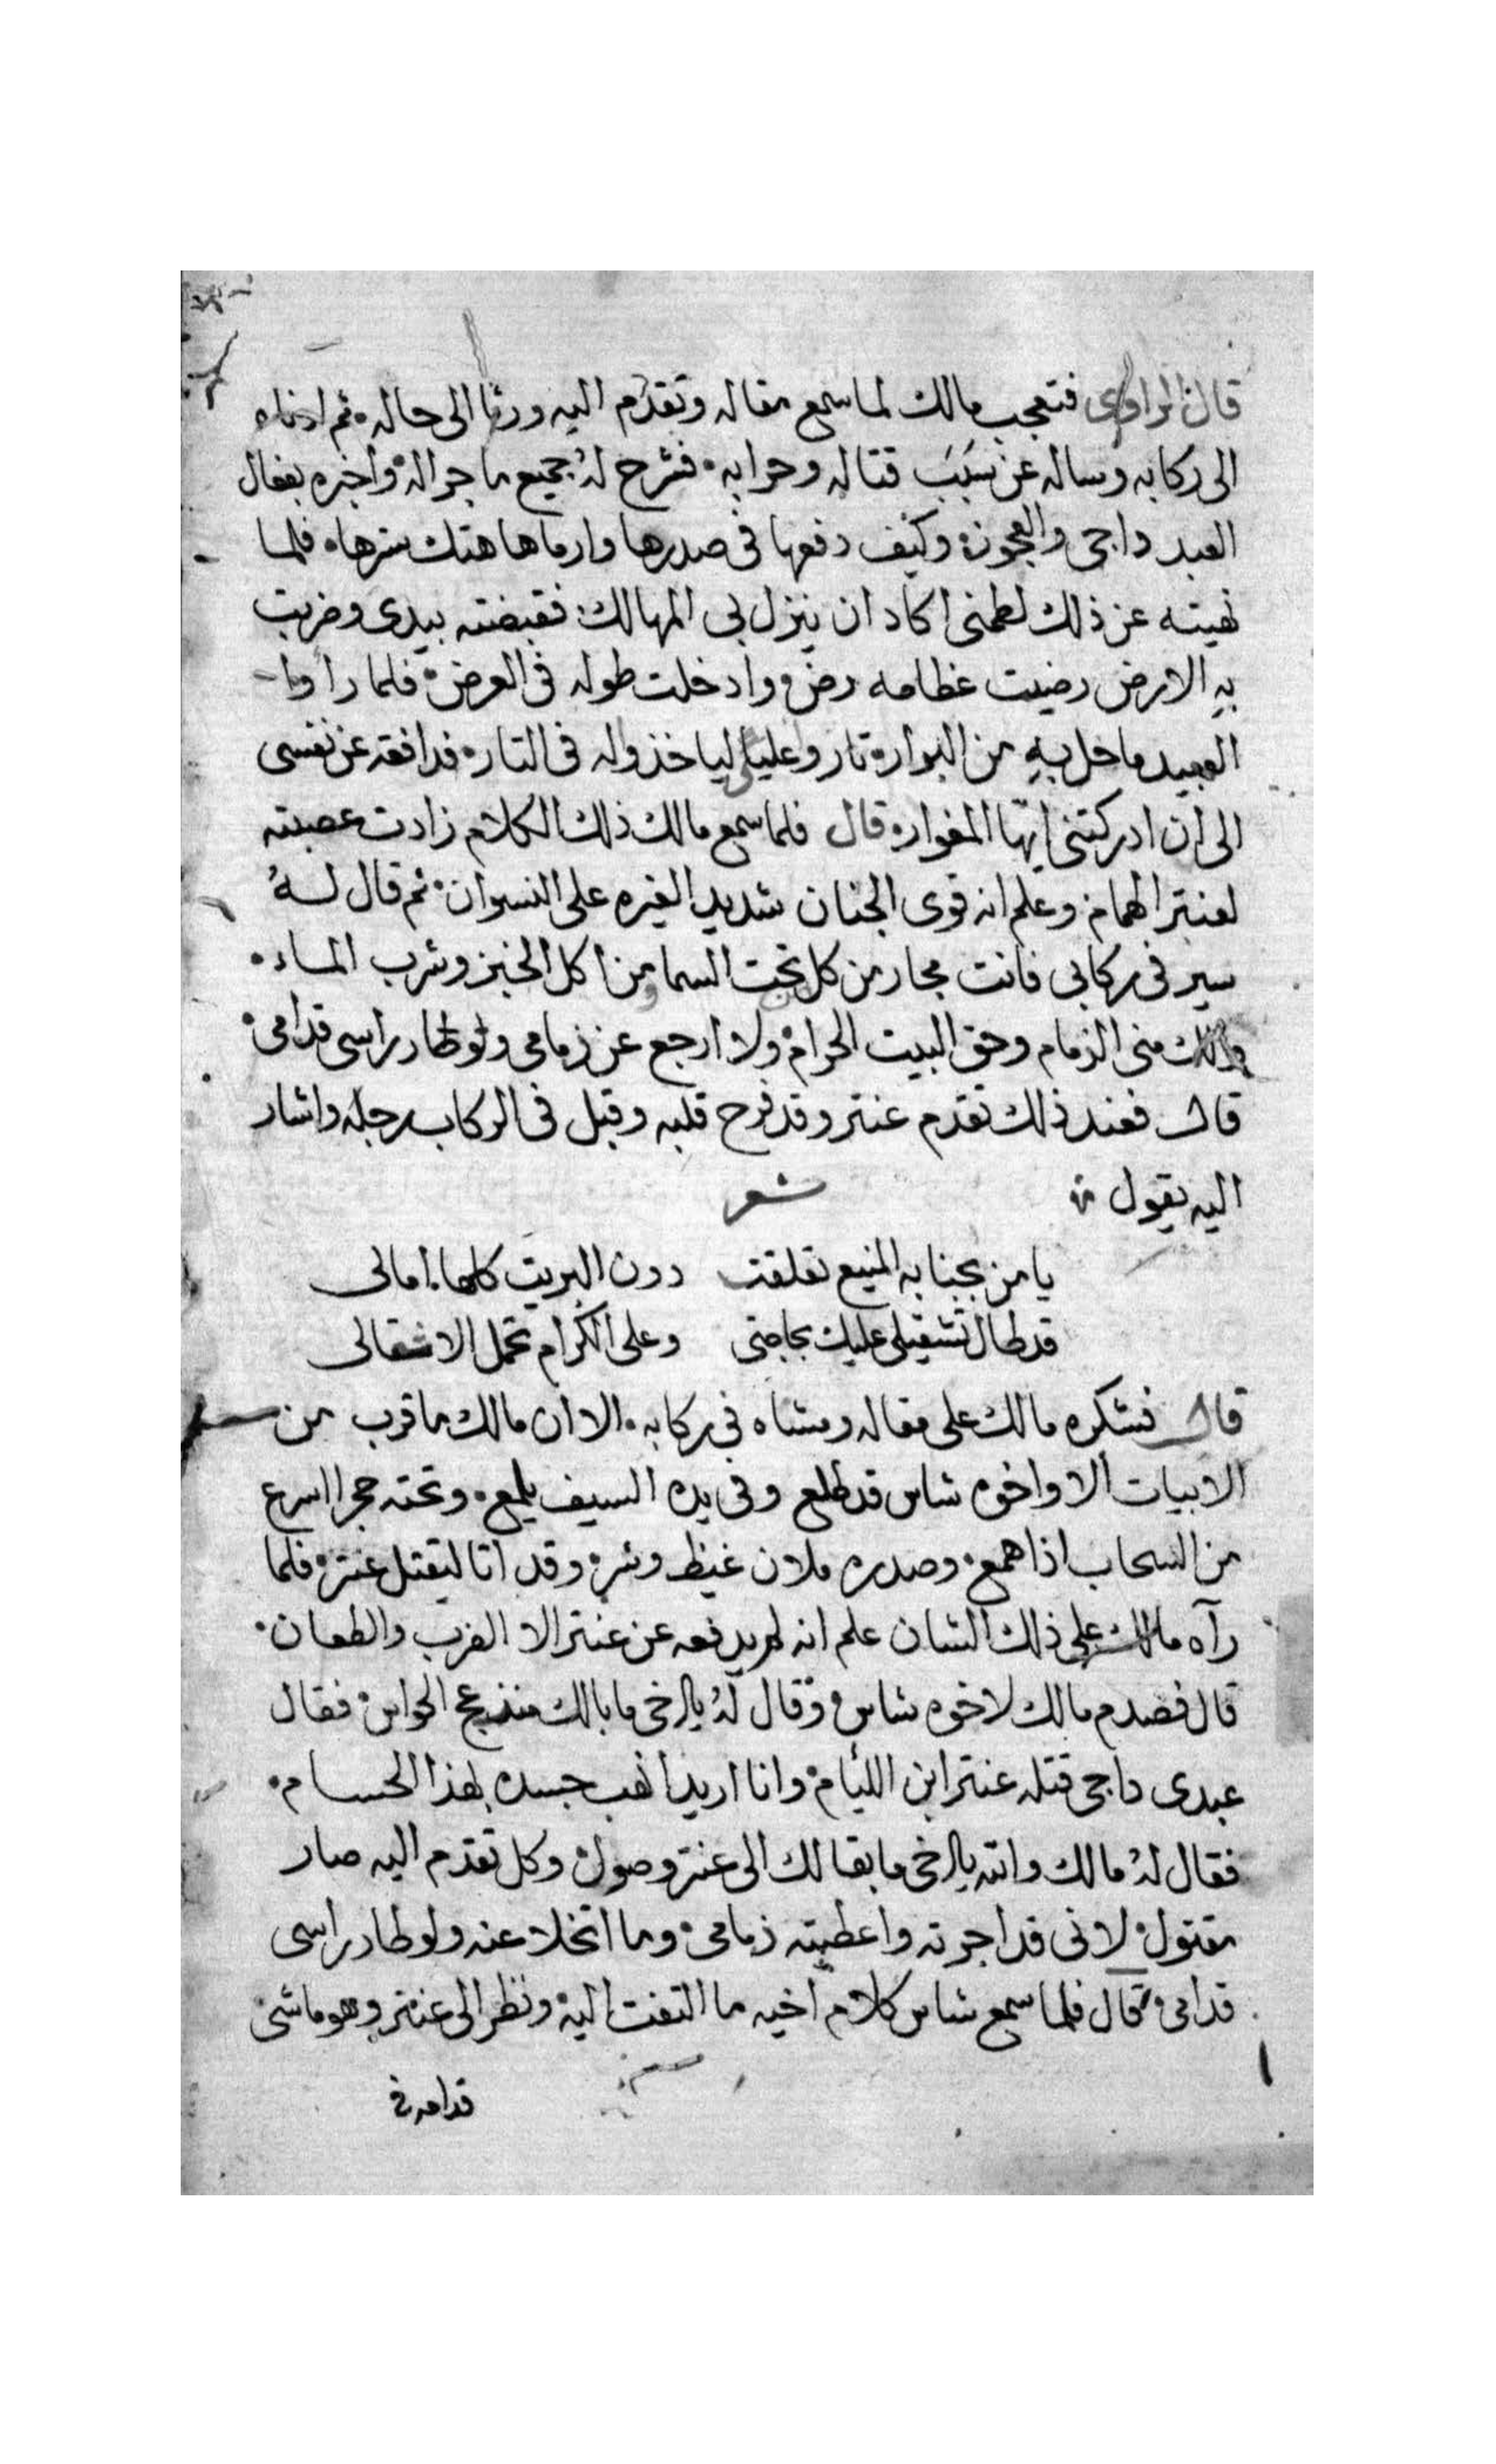 قال الراوى فتعجب مالك لما سمع مقاله وتقدم اليه ورثا الى حاله ثم ادناه
الى ركابه وساله عن سبب قتاله وحرابه فشرح له جميع ما جراله واخبره بفعال
العبد داجى والعجوزه وكيف دفعها فى صدرها وارماها هتك سترها فلما
نهيته عن ذلك لطمنى اكاد ان ينزل بى المهالك فقبضته بيدى وضربت
به الارض رضيت عظامه رض وادخلت طوله فى العرض فلما راوا
العبيد ما حل به من البواره تار وعليا لياخذوله فى التاره فدافعه عن نفسى
الى ان ادركتنى ايها المغواره قال فلما سمع مالك ذلك الكلام زادت عصبته
لعنتر الهمام وعلم انه قوى الجنان شديد الغيره على النسوان ثم قال له
سير فى ركابى فانت مجار من كل من تحت السما من اكل الخبز وشرب الماء
ولك منى الزمام وحق البيت الحرام ولا ارجع عن زمامى ولو طار راسى قدامى
قال فعند ذلك تقدم عنتر وقد فرح قلبه وقبل فى الركاب رجله واشار
اليه يقول
شعر
يا من بجنابه المنيع تعلقت دون البريت كلها امالى
قد طال تشقيلى عليك بحاجتى وعلى الكرام تحمل الاشقالى
قال فشكره مالك على مقاله ومشاه فى ركابه الا ان مالك ما قرب من
الابيات الا واخوه شاس قد طلع وفى يده السيف يلمع وتحته حجرا اسرع
من السحاب اذا همع وصدره ملان غيظ وشر وقد اتا ليقتل عنتر فلما
رآه مالك على ذلك الشان علم انه لم يدفعه عن عنتر الا الضرب والطعان
قال فصدم مالك لاخوه شاس وقال له يا اخى ما بالك منذعج الحواس فقال
عبدى داجى قتله عنتر ابن الليام وانا اريد انهب جسده بهذا الحسام
فقال له مالك والله يا اخى ما بقا لك الى عنتر وصول وكل تقدم اليه صار
مقتول لانى قد اجرته واعطيته ذمامى وما اتخلا عنه ولو طار راسى
قدامى قال فلما سمع شاس كلام اخيه ما التفت اليه ونظر الى عنتر وهو ماشى
قدامه فى